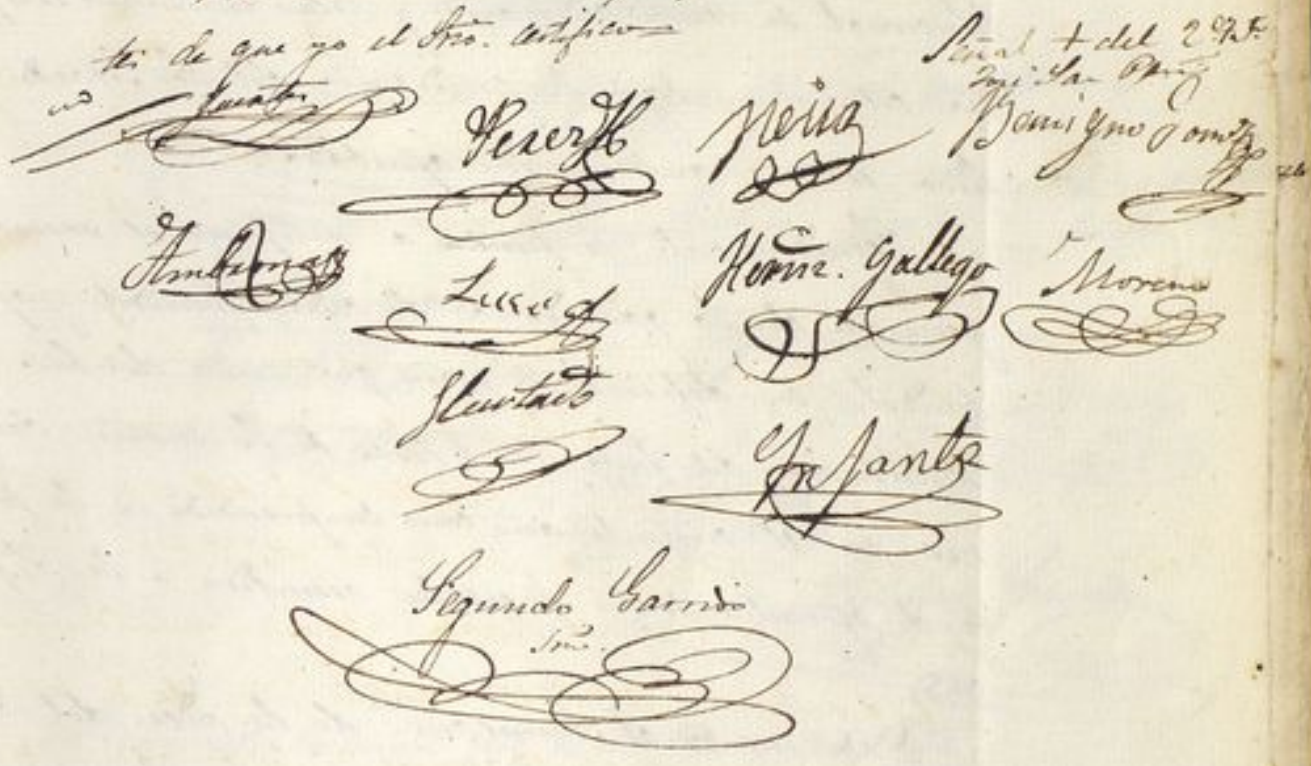 tes de que yo el Srio. certifico
Señal + del 2º
José San
Fuentes
Perez H
Neila
Benigno Gomez
Ambronas
Lucas
Hernz. Gallego
Moreno
Hurtado
Infante
Segundo Garrido
Srio.